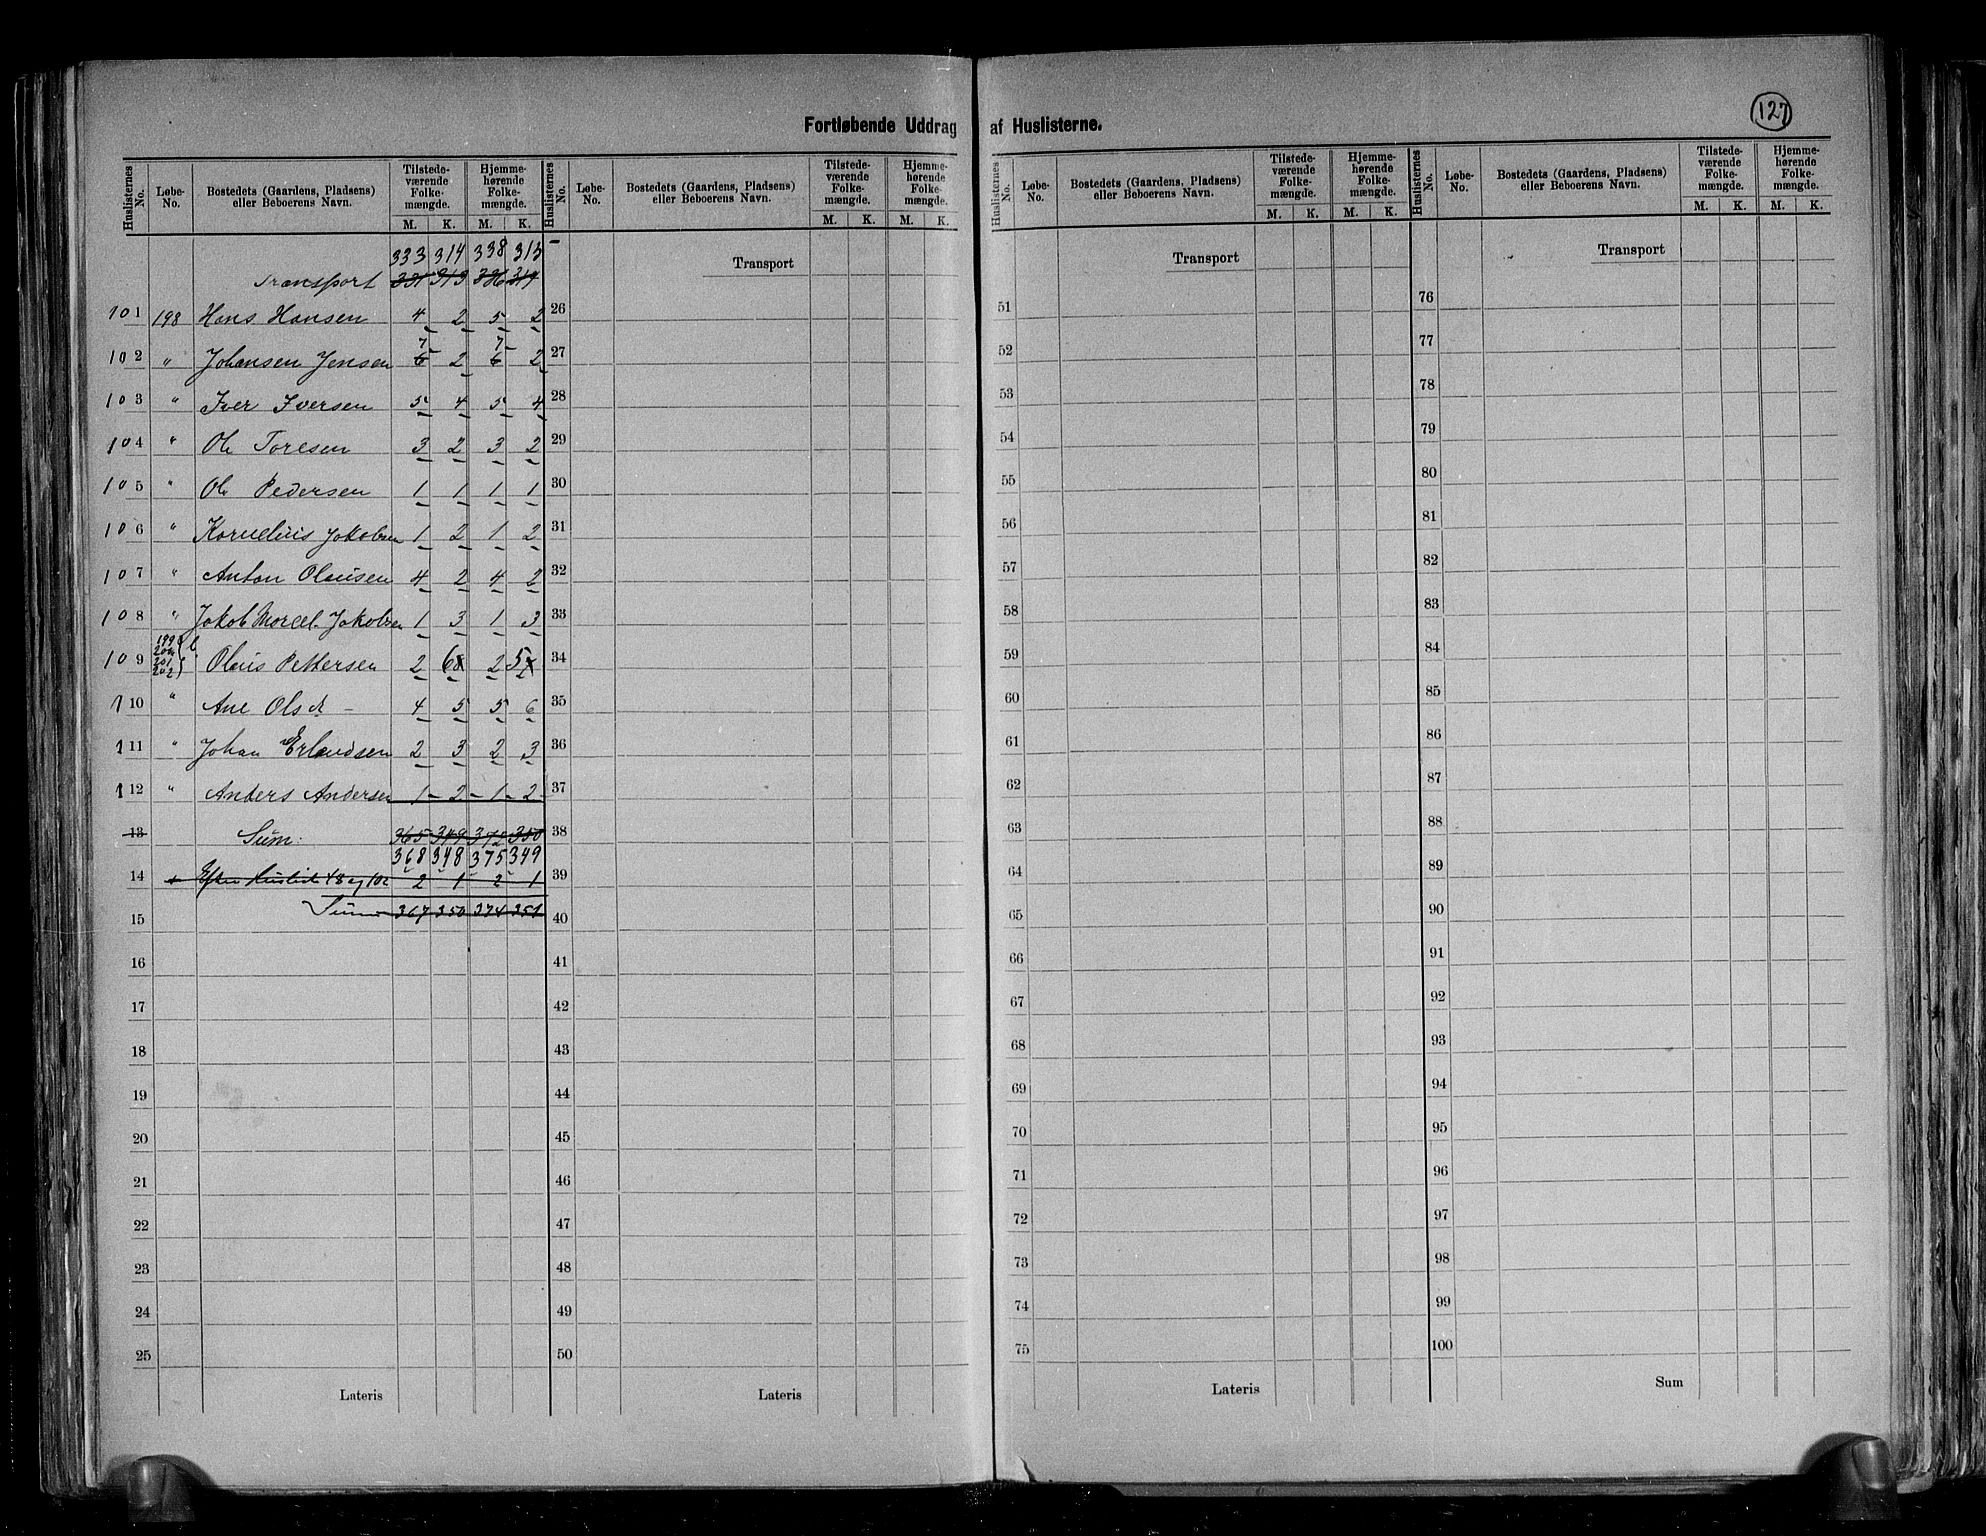 Fortløbende Uddrag af Huslisterne.
127
Huslisternes No. Løbe-No. Bostedets (Gaardens, Pladsens) eller Beboerens Navn. Tilstedeværende Folkemængde. M. K. Hjemmehørende Folkemængde. M. K.
333 314 338 315
Transport 331 313 336 314
101 198 Hans Hansen 4 2 5 2
102 " Johansen Jensen 7 6 2 7 6 2
103 " Iver Iversen 5 4 5 4
104 " Ole Toresen 3 2 3 2
105 " Ole Pedersen 1 1 1 1
106 " Kornelius Jakobsen 1 2 1 2
107 " Anton Olausen 4 2 4 2
108 " Jakob Morcel. Jakobsen 1 3 1 3
109 199 200 201 202 Olaus Pettersen 2 6 2 5
110 " Ane Olsd. 4 5 5 6
111 " Johan Erlandsen 2 3 2 3
112 " Anders Andersen 1 2 1 2
13 Sum: 365 349 372 350
368 348 375 349
14 + Efter Huslist 48 og 102 2 1 2 1
15 Sum 367 350 374 351
16
17
18
19
20
21
22
23
24
25
Lateris
Huslisternes No. Løbe-No. Bostedets (Gaardens, Pladsens) eller Beboerens Navn. Tilstedeværende Folkemængde. M. K. Hjemmehørende Folkemængde. M. K.
Transport
26
27
28
29
30
31
32
33
34
35
36
37
38
39
40
41
42
43
44
45
46
47
48
49
50
Lateris
Huslisternes No. Løbe-No. Bostedets (Gaardens, Pladsens) eller Beboerens Navn. Tilstedeværende Folkemængde. M. K. Hjemmehørende Folkemængde. M. K.
Transport
51
52
53
54
55
56
57
58
59
60
61
62
63
64
65
66
67
68
69
70
71
72
73
74
75
Lateris
Huslisternes No. Løbe-No. Bostedets (Gaardens, Pladsens) eller Beboerens Navn. Tilstedeværende Folkemængde. M. K. Hjemmehørende Folkemængde. M. K.
Transport
76
77
78
79
80
81
82
83
84
85
86
87
88
89
90
91
92
93
94
95
96
97
98
99
100
Sum